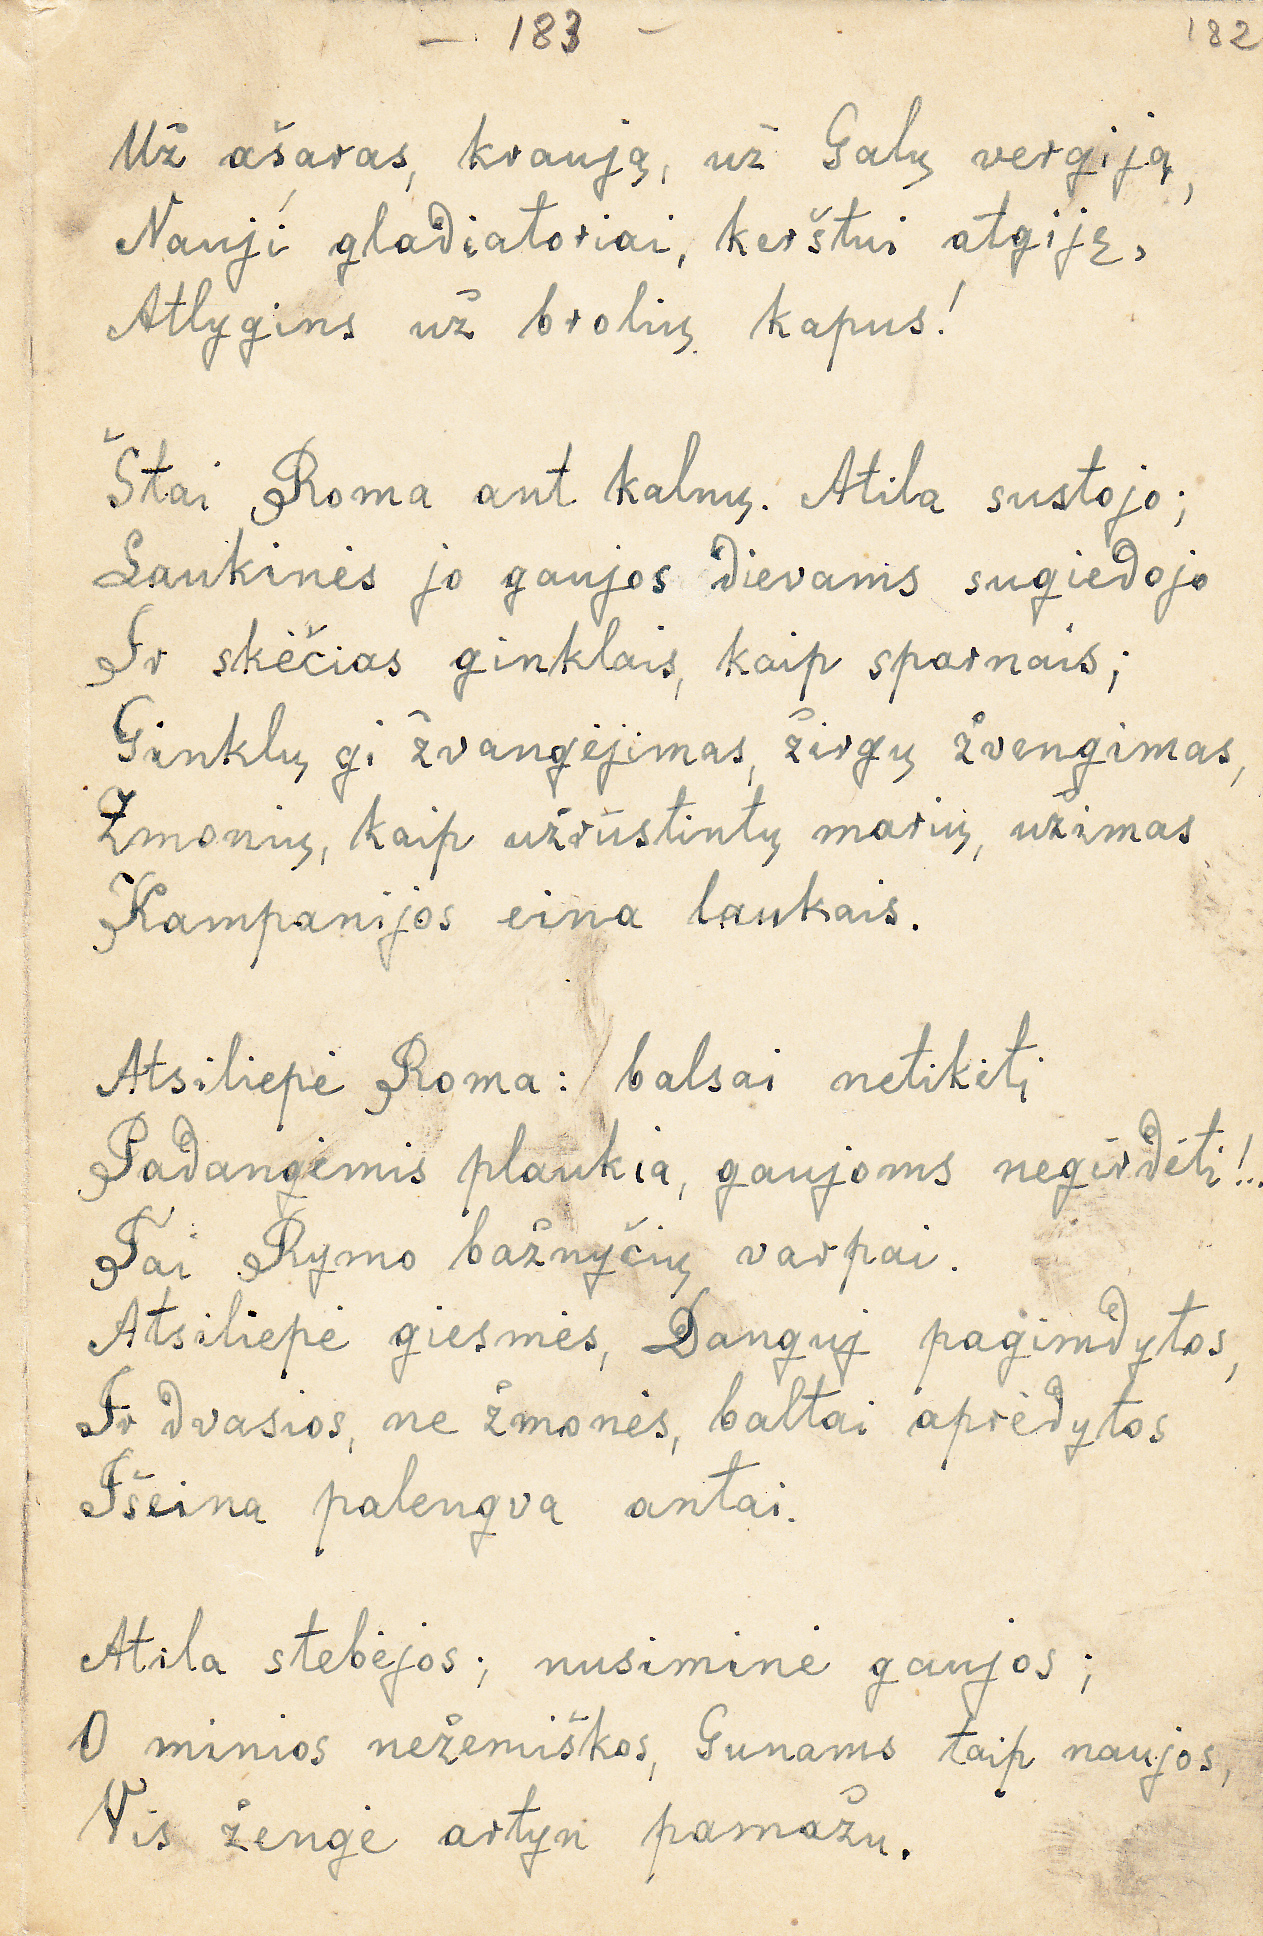 – 183 –
182
Už ašaras, kraują, už Galų vergiją,
Nauji gladiatoriai, kerštui atgiję,
Atlygins už brolių kapus!
Štai Roma ant kalnų. Atila sustojo;
Laukinės jo gaujos dievams sugiedojo
Ir skėčias ginklais, kaip sparnais;
Ginklų gi žvangėjimas, žirgų žvengimas,
Žmonių, kaip užrūstintų marių, užimas
Kampanijos eina laukais.
Atsiliepė Roma: balsai netikėti
Padangėmis plaukia, gaujoms negirdėti!..
Tai Rymo bažnyčių varpai.
Atsiliepė giesmės, Danguj pagimdytos,
Ir dvasios, ne žmonės, baltai aprėdytos
Išeina palengva antai.
Atila stebėjos; nusiminė gaujos;
O minios nežemiškos, Gunams taip naujos,
Vis žengė artyn pamažu.